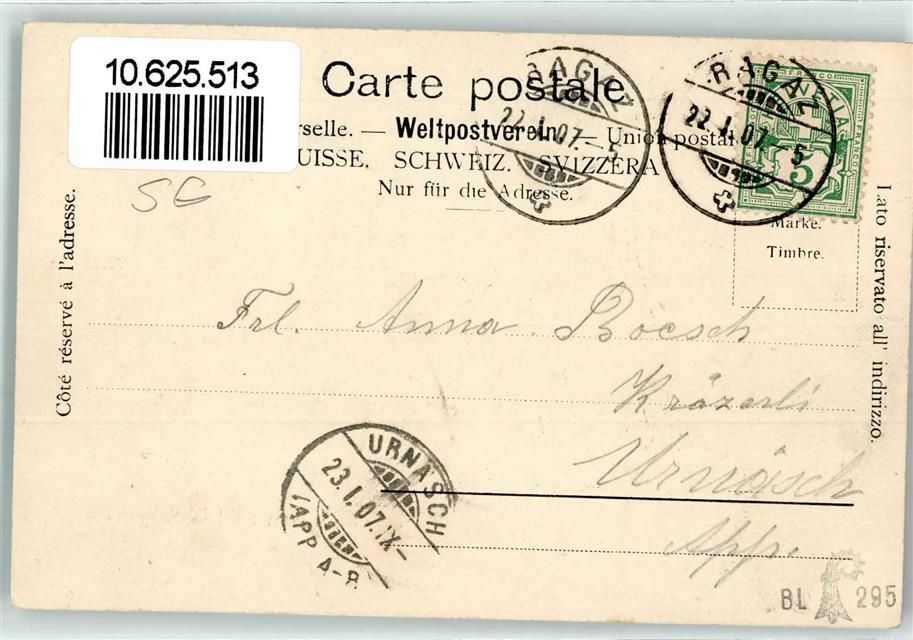 10.625.513
Carte postale
rselle. — Weltpostverein. — Union postal
UISSE. SCHWEIZ. SVIZZERA
Nur für die Adresse.
RAGAZ
22.I.07.
RAGAZ
22.I.07. 5
HELVETIA
FRANCO
5
Marke.
Timbre.
SG
Côté réservé à l'adresse.
Lato riservato all' indirizzo.
Frl. Anna Boesch
Kräzerli
Urnäsch
App.
URNÄSCH
23.I.07.IX-
(APP. A-R.
BL 295